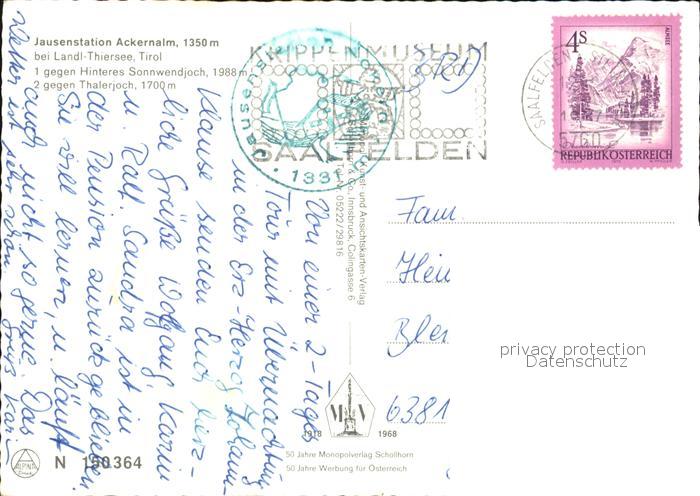 Jausenstation Ackernalm, 1350 m
bei Landl-Thiersee, Tirol
1 gegen Hinteres Sonnwendjoch, 1988 m
2 gegen Thalerjoch, 1700 m
KRIPPENMUSEUM
SAALFELDEN
1331
4 S
ALMSEE
REPUBLIK ÖSTERREICH
SAALFELDEN
5760
Kunst- und Ansichtskarten-Verlag
& Co., Innsbruck, Colingasse 6
Tel.-Nr. 05222/29816
Von einer 2-Tages
Tour mit Übernachtung
in der Erz-Herzog Johann-
Klause senden Euch herz-
liche Grüße Wolfgang, Karin
u. Ralf. Sandra ist in
der Pension zurückgeblieben.
Sie will lernen, u. läuft
auch nicht so gerne. Das
Wetter ist sehr schön.
Fam.
Hein
Bles
6381
privacy protection
Datenschutz
MV
1918 1968
50 Jahre Monopolverlag Schöllhorn
50 Jahre Werbung für Österreich
ALPINA
N 150364